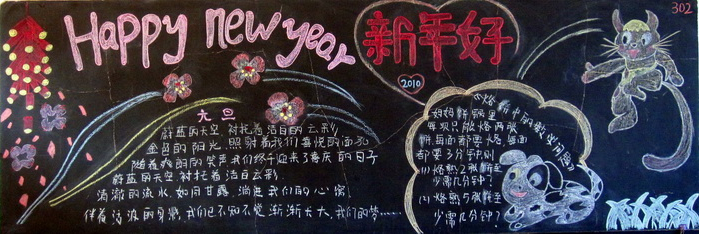 Happy new year
新年好
302
2010
元旦
蔚蓝的天空 衬托着洁白的云彩
金色的阳光 照射着我们喜悦的面孔
随着 的笑声我们终于迎来了喜庆的日子
蔚蓝的天空 衬托着洁白云彩
清澈的流水,如同甘露,淌进我们的心窝
伴着 的身影,我们已不知不觉渐渐长大,我们的梦……
烙饼中的数学问题
妈妈 锅里
每次只能烙两张
饼,每面都要烙,每面
都要3分钟,则
(1)烙熟2张饼至
少需几分钟?
(2)烙熟5张饼至
少需几分钟?